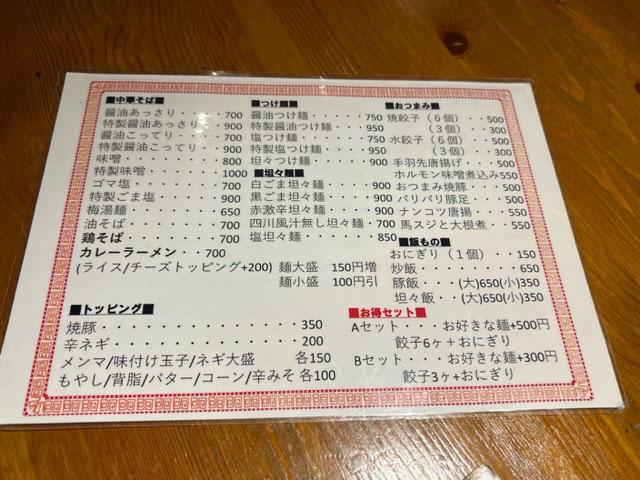 ■中華そば■
醤油あっさり・・・・700
特製醤油あっさり・・900
醤油こってり・・・・700
特製醤油こってり・・900
味噌・・・・・・・・800
特製味噌・・・・・・1000
ゴマ塩・・・・・・・700
特製ごま塩・・・・・900
梅湯麺・・・・・・・650
油そば・・・・・・・700
鶏そば・・・・・・・700
カレーラーメン・・700
(ライス/チーズトッピング+200)
■つけ麺■
醤油つけ麺・・・・・750
特製醤油つけ麺・・・950
塩つけ麺・・・・・・750
特製塩つけ麺・・・・950
坦々つけ麺・・・・・900
■坦々麺■
白ごま坦々麺・・・・900
黒ごま坦々麺・・・・900
赤激辛坦々麺・・・・900
四川風汁無し坦々麺・700
塩坦々麺・・・・・・850
麺大盛 150円増
麺小盛 100円引
■おつまみ■
焼餃子（６個）・・500
（３個）・・300
水餃子（６個）・・500
（３個）・・300
手羽先唐揚げ・・・500
ホルモン味噌煮込み550
おつまみ焼豚・・・500
パリパリ豚足・・・500
ナンコツ唐揚・・・550
馬スジと大根煮・・550
■飯もの■
おにぎり（１個）・・150
炒飯・・・・・・・・650
豚飯・・(大)650(小)350
坦々飯・・(大)650(小)350
■トッピング■
焼豚・・・・・・・・・・・・350
辛ネギ・・・・・・・・・・・200
メンマ/味付け玉子/ネギ大盛 各150
もやし/背脂/バター/コーン/辛みそ 各100
■お得セット■
Aセット・・・お好きな麺+500円
餃子6ヶ+おにぎり
Bセット・・・お好きな麺+300円
餃子3ヶ+おにぎり